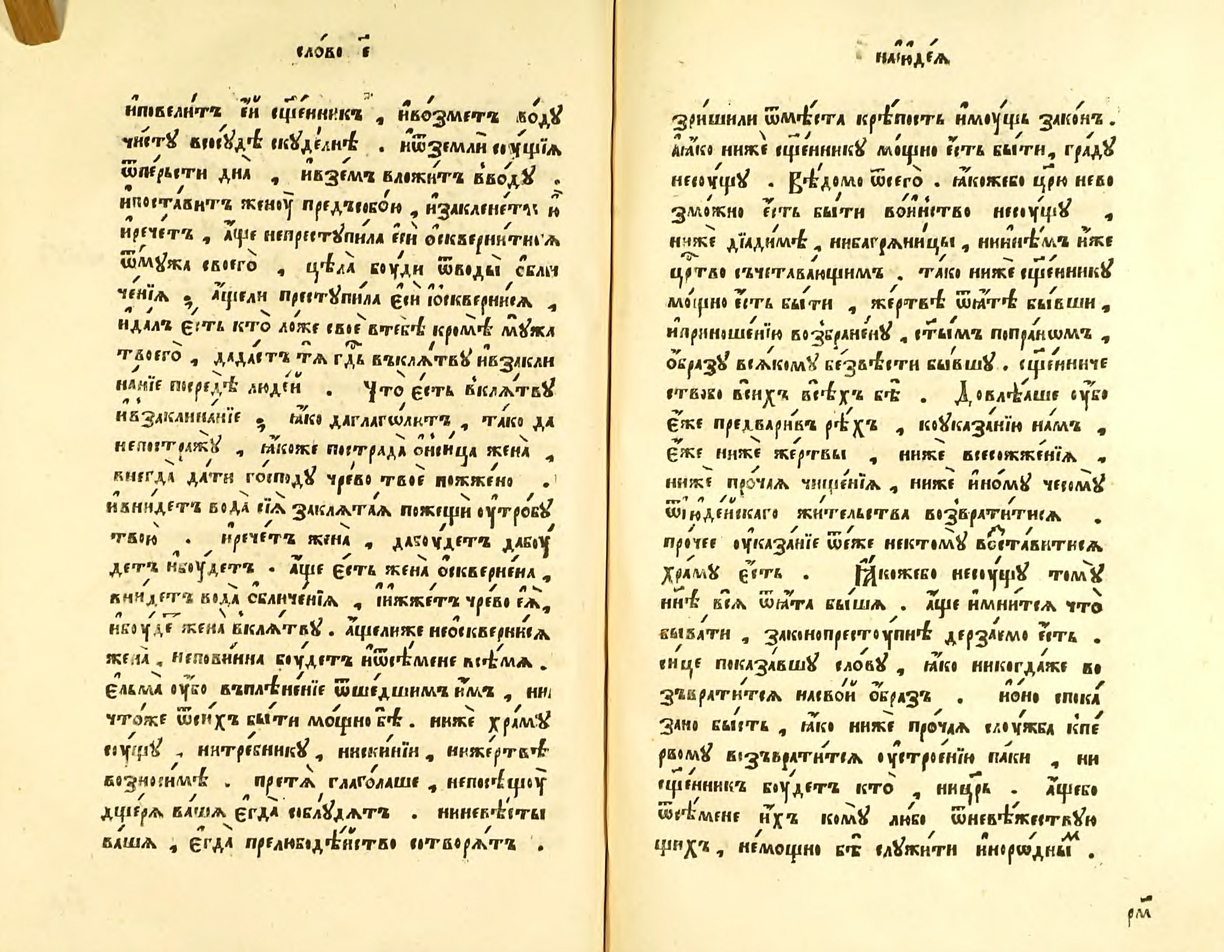 сло́во є҃
и҆повели́тъ є҆́й сщ҃е́нникъ , и҆во́зметъ во́дꙋ
чи́стꙋ всосꙋ́дѣ скꙋде́лнѣ . и҆ѿземли̑ сꙋ́щїѧ
ѿпе́рьсти дна̀ , и҆взе́мъ вложи́тъ вво́дꙋ .
и҆поста́витъ женоу̀ предъсобо́ю , и҆закленє́тъ ю҆̀
и҆рече́тъ , а҆́ще непрестꙋпи́ла є҆сѝ ѡ҆скверни́тисѧ
ѿмꙋ́жа своего̀ , цѣла̀ боу́ди ѿводы̀ ѡ҆бли
че́нїѧ ; а҆́щели престꙋпи́ла є҆сѝ и҆ѡскверни́сѧ ,
и҆да́лъ є҆́сть кто̀ ло́же своѐ втебѣ̀ кромѣ̀ мꙋ́жа
твоего̀ , дада́стъ тѧ̀ гдⷭ҇ь въклѧ́твꙋ и҆взакли
на́нїе посредѣ̀ люде́й . Что̀ є҆́сть вклѧ́твꙋ
и҆взаклина́нїе ; ꙗ҆́ко даглаго́литъ , та́ко да
непостра́жꙋ , ꙗ҆́коже пострада̀ ѻ҆́нсица жена̀ ,
внегда̀ да́ти го́сподꙋ чре́во твоѐ пожже́но .
и҆вни́детъ вода̀ сїѧ̀ заклѧ́таѧ пожещѝ оу҆тро́бꙋ
твою̀ . и҆рече́тъ жена̀ , дабоу́детъ дабоу́
детъ и҆боу́детъ . а҆́ще є҆́сть жена̀ ѡ҆скверне́на ,
вни́детъ вода̀ ѡ҆бличе́нїѧ , и҆жже́тъ чре́во є҆ѧ̀ ,
и҆боу́де жена̀ вклѧ́твꙋ . а҆́щелиже неѡ҆скверни́сѧ
жена̀ , непови́нна боу́детъ и҆ѿсѣ́мене всѣ́мѧ .
є҆льма̀ оу҆́бо въплѣне́нїе ѿше́дшимъ и҆̀мъ , ни
что́же ѿси́хъ бы́ти мо́щно бѣ̀ . нижѐ хра́мꙋ
сꙋ́щꙋ , нитре́бникꙋ , ниски́нїи , ниже́ртвѣ
возноси́мѣ . претѧ̀ глаго́лаше , непосѣщоу̀
дще́рѧ ва́шѧ є҆гда̀ соблꙋ́дѧтъ . ниневѣ́сты
ва́шѧ , є҆гда̀ прелюбодѣ́йство сотворѧ́тъ .
наї҆ꙋде́ѧ
зриши́ли ѿмѣ́ста крѣ́пость и҆моу́щь зако́нъ .
а҆ꙗ҆́ко нижѐ сщ҃е́нникꙋ мо́щно є҆́сть бы́ти , гра́дꙋ
несоу́щꙋ . Вѣ́домо ѿсего̀ . ꙗ҆́кожебо цр҃ю нево
змо́жно є҆́сть бы́ти во́инство несоу́щꙋ ,
нижѐ дїади́мѣ , нибагрѧни́цы , нии҆нѣ́мъ и҆́же
црⷭ҇тво съчетава́ющимъ . та́ко нижѐ сщ҃е́нникꙋ
мо́щно є҆́сть бы́ти , же́ртвѣ ѿѧ́тѣ бы́вши ,
и҆приноше́нїю возбране́нꙋ , ст҃ы́мъ попра́нѡмъ ,
ѻ҆́бразꙋ всѧ́комꙋ безвѣ́сти бы́вшꙋ . сщ҃е́нниче
ствобо вси́хъ всѣ́хъ бѣ̀ . Довлѣ́аше оу҆́бо
є҆́же предвари́въ рѣ́хъ , коуказа́нїю на́мъ ,
є҆́же нижѐ же́ртвы , нижѐ всесожже́нїѧ ,
нижѐ про́чаѧ чище́нїѧ , нижѐ и҆но́мꙋ чесо́мꙋ
ѿїюде́йскаго жи́тельства возврати́тисѧ .
про́чее оу҆каза́нїе ѿе́же не́ктомꙋ воста́витисѧ
хра́мꙋ є҆́сть . Ꙗ҆́кожебо несоу́щꙋ томꙋ̀
нн҃ѣ всѧ̀ ѿѧ́та бы́шѧ . а҆́ще и҆мни́тсѧ что̀
быва́ти , законопрестоу́пнѣ дерза́емо є҆́сть .
си́це показа́вшꙋ сло́вꙋ , ꙗ҆́ко никогда́же во
зъврати́тсѧ насво́й ѻ҆́бразъ . и҆ѻ́но спока́
зано бы́сть , ꙗ҆́ко нижѐ про́чаѧ слоу́жба кпе́
рвомꙋ возъврати́тсѧ оу҆строе́нїю па́ки , ни
сщ҃е́нникъ боу́детъ кто̀ , ницр҃ь . а҆́щебо
ѿсѣ́мене и҆́хъ комꙋ̀ лю́бо ѿневѣ́жествꙋю
щихъ , немо́щно бѣ̀ слꙋжи́ти и҆норѡ́днымъ .
рм҃